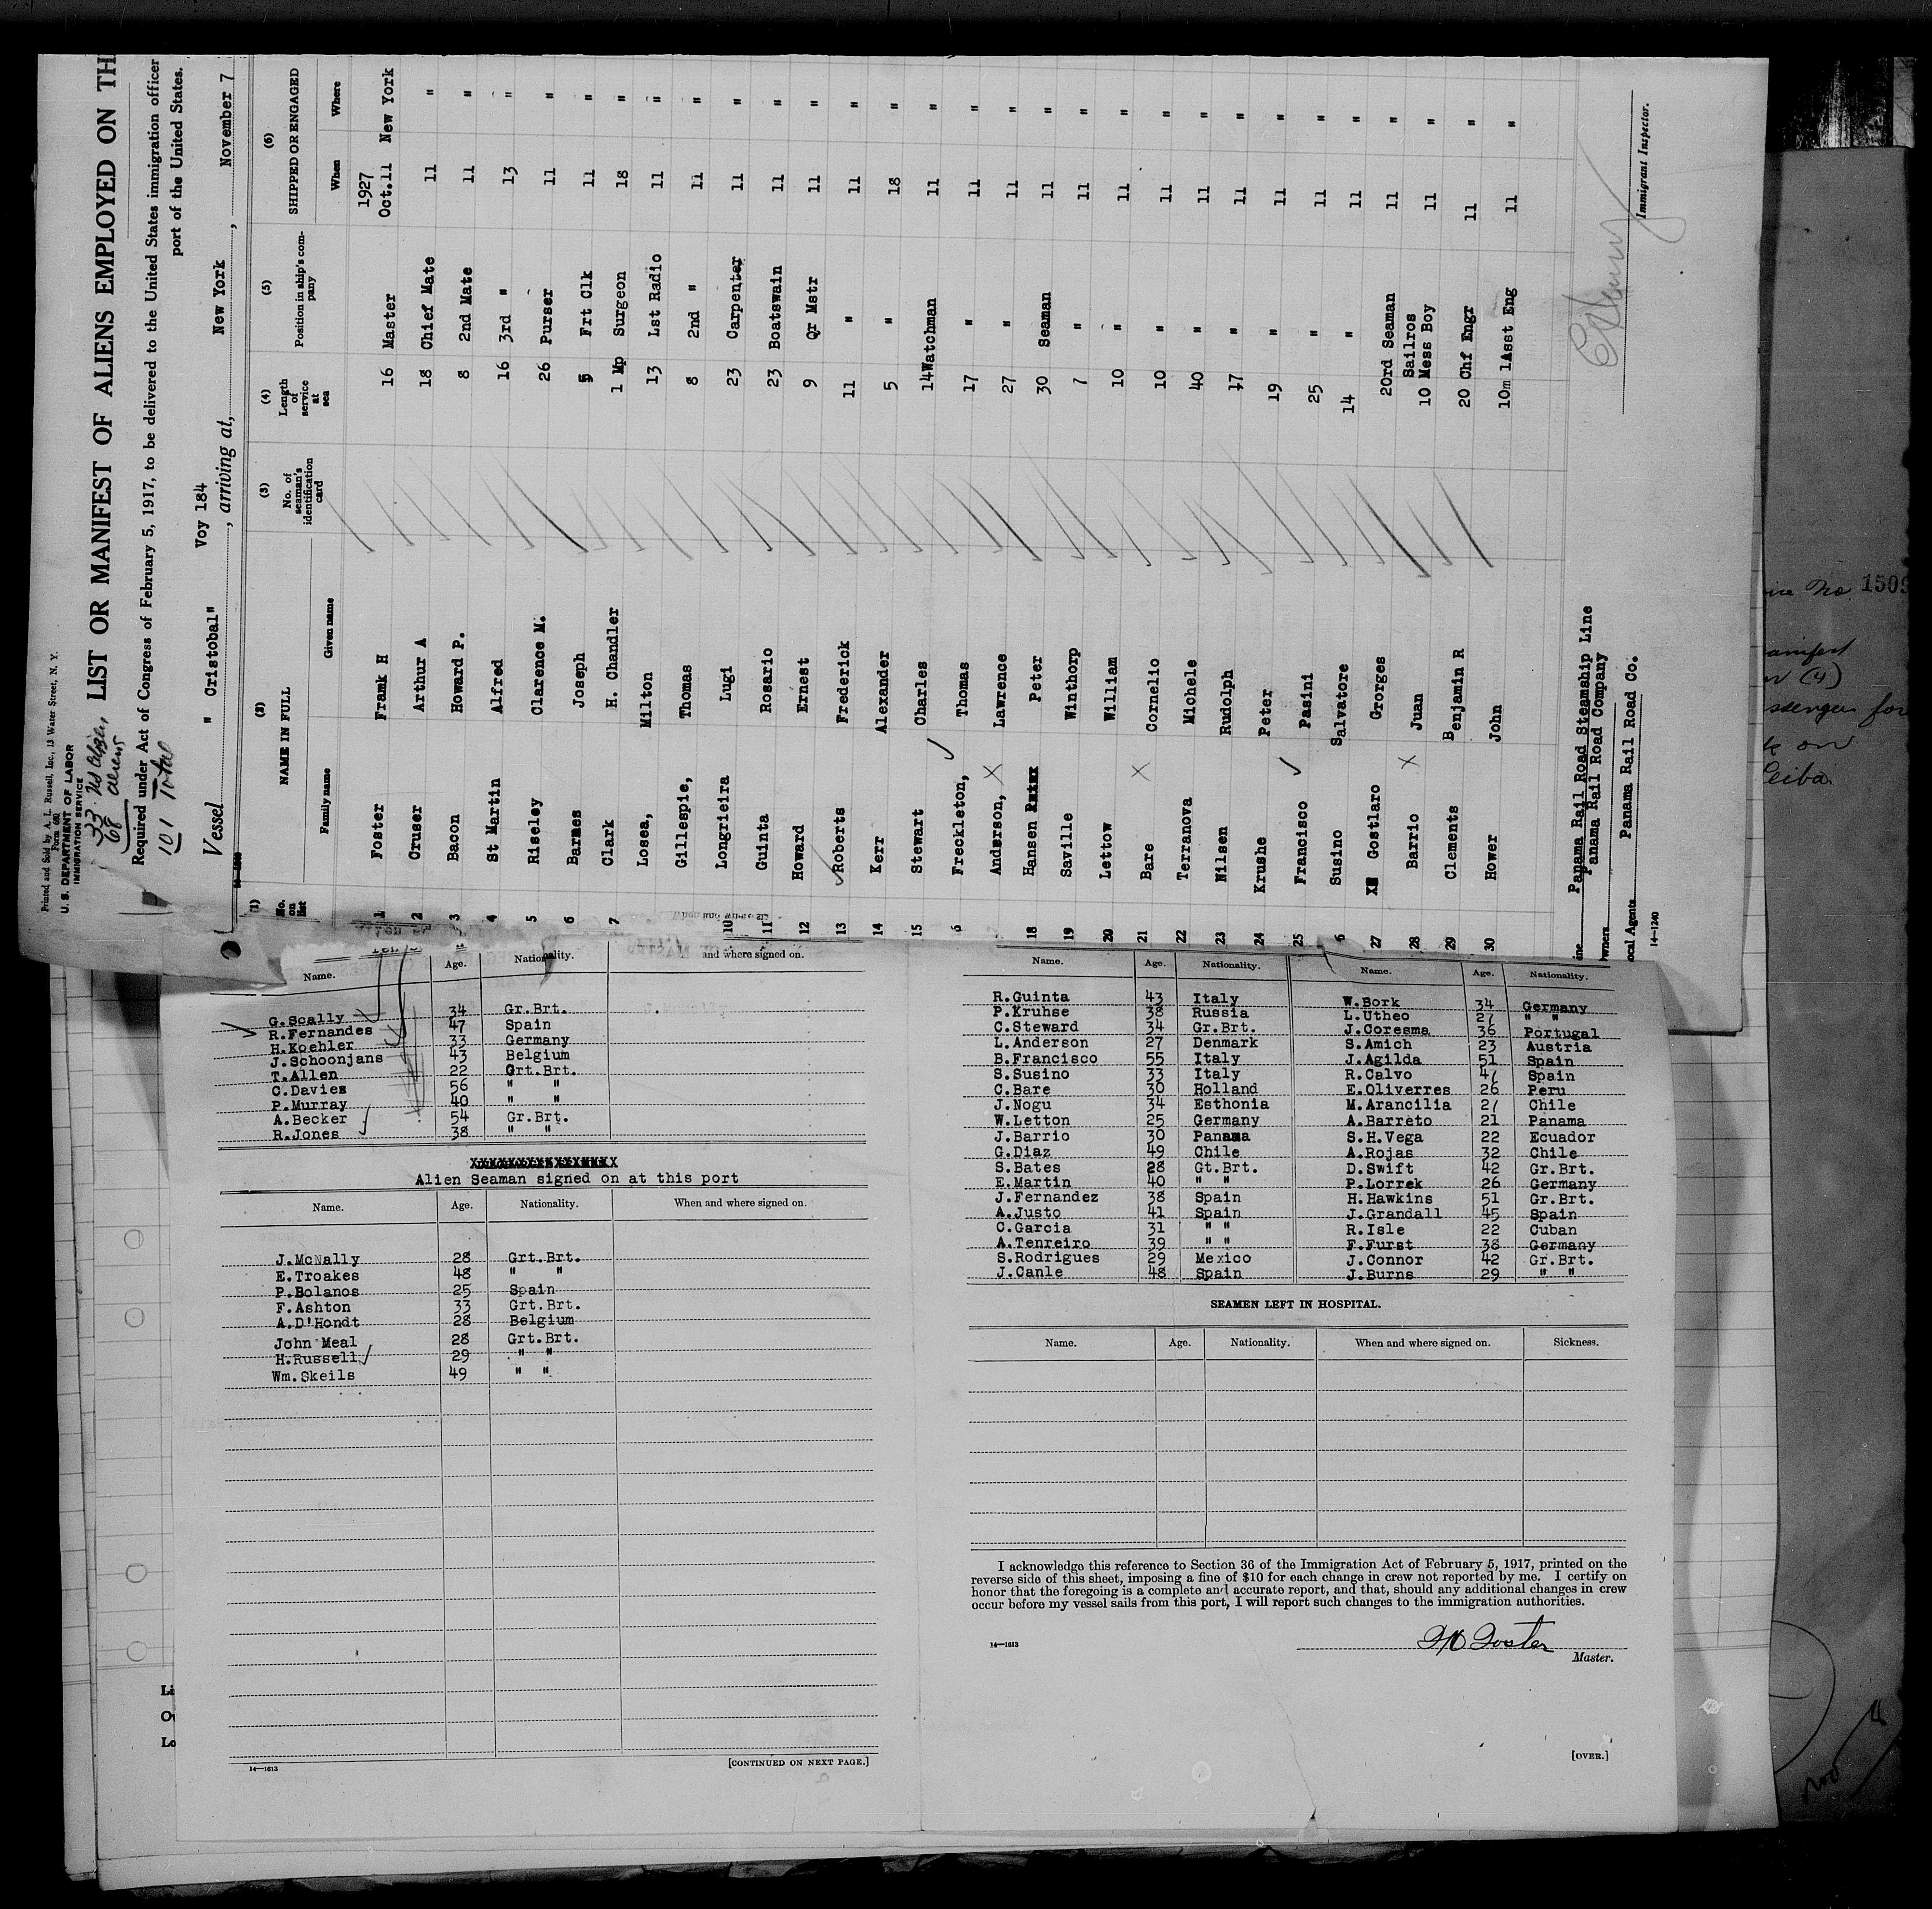 Printed and Sold by A. L. Russell, Inc., 13 Water Street, N. Y.
Form 680
U. S. DEPARTMENT OF LABOR
IMMIGRATION SERVICE
33
68 aliens
101 Total
LIST OR MANIFEST OF ALIENS EMPLOYED ON TH
Required under Act of Congress of February 5, 1917, to be delivered to the United States immigration officer
port of the United States.
Vessel " Cristobal" Voy 184, arriving at, New York, November 7
(1) (2) (3) (4) (5) (6)
No. on list NAME IN FULL No. of seaman's identification card Length of service at sea Position in ship's company SHIPPED OR ENGAGED
Family name Given name When Where
1927
1 Foster Framk H 16 Master Oct.11 New York
2 Cruser Arthur A 18 Chief Mate 11 "
3 Bacon Howard P. 8 2nd Mate 11 "
4 St Martin Alfred 16 3rd " 13 "
5 Riseley Clarence M. 26 Purser 11 "
6 Barnes Joseph 5 Frt Clk 11 "
7 Clark H. Chandler 1 Mp Surgeon 18 "
Losea, Milton 13 Lst Radio 11 "
Gillespie, Thomas 8 2nd " 11 "
10 Longrieira Lugi 23 Carpenter 11 "
11 Guinta Rosario 23 Boatswain 11 "
12 Howard Ernest 9 Qr Mstr 11 "
13 Roberts Frederick 11 " 11 "
14 Kerr Alexander 5 " 18 "
15 Stewart Charles 14 Watchman 11 "
6 Freckleton, Thomas 17 " 11 "
Anderson, Lawrence 27 " 11 "
18 Hansen Peter 30 Seaman 11 "
19 Saville Winthorp 7 " 11 "
20 Lettow William 10 " 11 "
21 Bare Cornelio 10 " 11 "
22 Terranova Michele 40 " 11 "
23 Nilsen Rudolph 17 " 11 "
24 Krushe Peter 19 " 11 "
25 Francisco Pasini 25 " 11 "
6 Susino Salvatore 14 " 11 "
27 Gostlaro Grorges 20rd Seaman 11 "
Sailros
28 Barrio Juan 10 Mess Boy 11 "
29 Clements Benjamin R 20 Chf Engr 11 "
30 Hower John 10m 1Asst Eng 11 "
ine Panama Rail Road Steamship Line
wners Panama Rail Road Company
ocal Agents Panama Rail Road Co.
14-1240
Immigrant Inspector.
Name. Age. Nationality. and where signed on.
G.Scally 34 Gr.Brt.
R.Fernandes 47 Spain
H.Koehler 33 Germany
J.Schoonjans 43 Belgium
T.Allen 22 Grt.Brt.
C.Davies 56 " "
P.Murray 40 " "
A.Becker 54 Gr.Brt.
R.Jones 38 " "
Alien Seaman signed on at this port
Name. Age. Nationality. When and where signed on.
J.McNally 28 Grt.Brt.
E.Troakes 48 " "
P.Bolanos 25 Spain
F.Ashton 33 Grt.Brt.
A.D'Hondt 28 Belgium
John Meal 28 Grt.Brt.
H.Russell 29 " "
Wm.Skeils 49 " "
14—1613
[CONTINUED ON NEXT PAGE.]
Name. Age. Nationality. Name. Age. Nationality.
R.Guinta 43 Italy W.Bork 34 Germany
P.Kruhse 38 Russia L.Utheo 27 " "
C.Steward 34 Gr.Brt. J.Coresma 36 Portugal
L.Anderson 27 Denmark S.Amich 23 Austria
B.Francisco 55 Italy J.Agilda 51 Spain
S.Susino 33 Italy R.Calvo 47 Spain
C.Bare 30 Holland E.Oliverres 26 Peru
J.Nogu 34 Esthonia M.Arancilia 27 Chile
W.Letton 25 Germany A.Barreto 21 Panama
J.Barrio 30 Panama S.H.Vega 22 Ecuador
G.Diaz 49 Chile A.Rojas 32 Chile
S.Bates 28 Gt.Brt. D.Swift 42 Gr.Brt.
E.Martin 40 " " P.Lorrek 26 Germany
J.Fernandez 38 Spain H.Hawkins 51 Gr.Brt.
A.Justo 41 Spain J.Grandall 45 Spain
C.Garcia 31 " " R.Isle 22 Cuban
A.Tenreiro 39 " " F.Furst 38 Germany
S.Rodrigues 29 Mexico J.Connor 42 Gr.Brt.
J.Canle 48 Spain J.Burns 29 " "
SEAMEN LEFT IN HOSPITAL.
Name. Age. Nationality. When and where signed on. Sickness.
I acknowledge this reference to Section 36 of the Immigration Act of February 5, 1917, printed on the
reverse side of this sheet, imposing a fine of $10 for each change in crew not reported by me. I certify on
honor that the foregoing is a complete and accurate report, and that, should any additional changes in crew
occur before my vessel sails from this port, I will report such changes to the immigration authorities.
14—1613
F H Foster
Master.
[OVER.]
Li
Ow
Lo
No. 1509
(4)
for
on
Ceiba